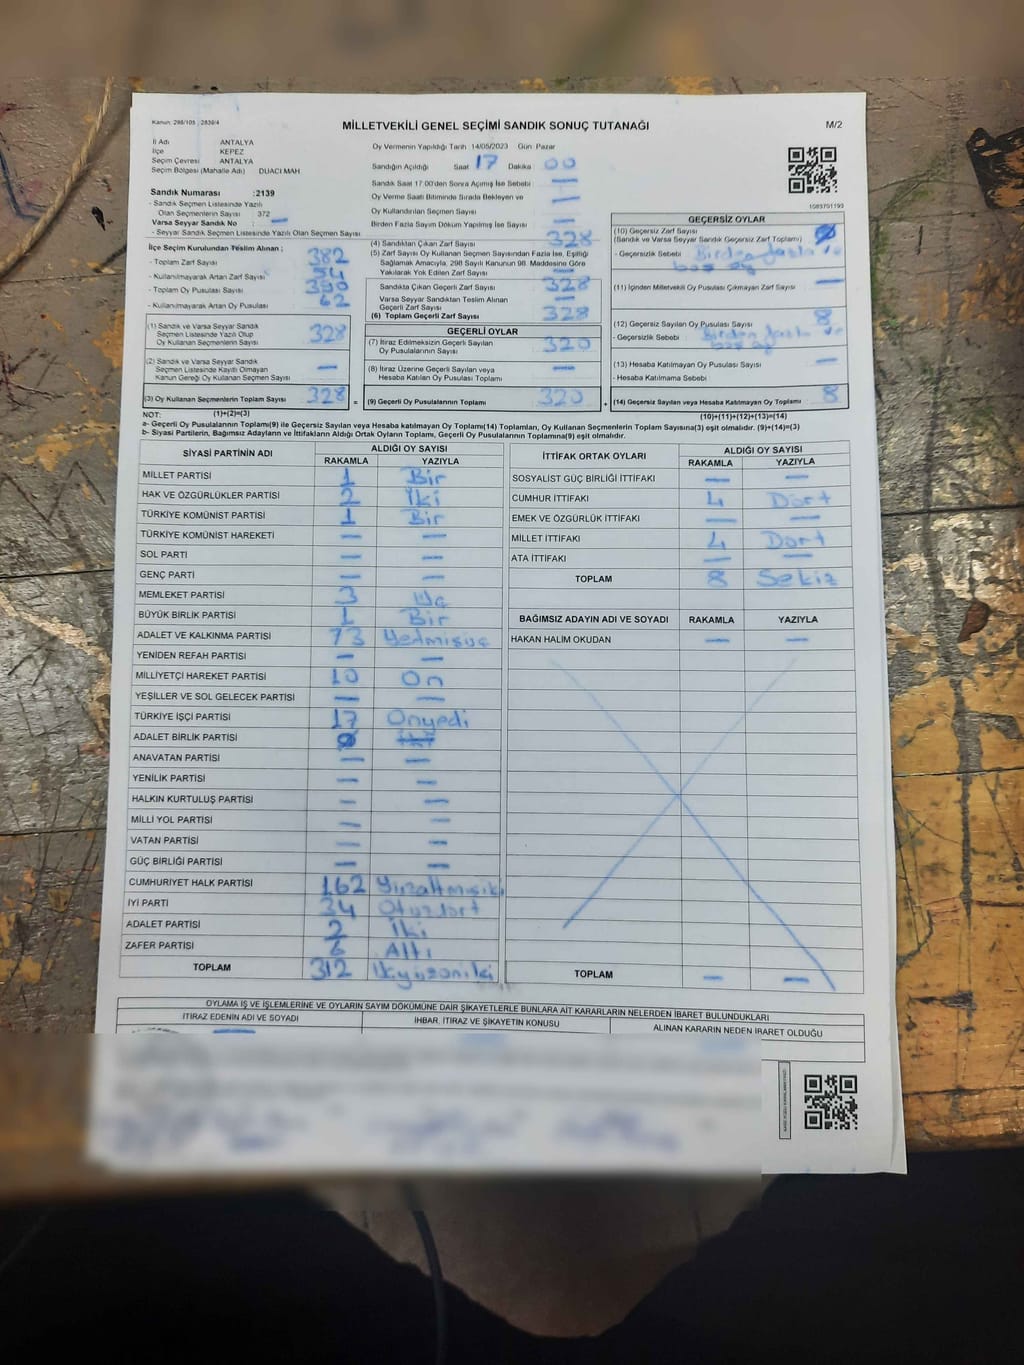 Kanun: 298/105 , 2839/4
MİLLETVEKİLİ GENEL SEÇİMİ SANDIK SONUÇ TUTANAĞI
M/2
İl Adı ANTALYA
İlçe KEPEZ
Seçim Çevresi ANTALYA
Seçim Bölgesi (Mahalle Adı) DUACI MAH
Sandık Numarası :2139
- Sandık Seçmen Listesinde Yazılı
Olan Seçmenlerin Sayısı : 372
Varsa Seyyar Sandık No —
- Seyyar Sandık Seçmen Listesinde Yazılı Olan Seçmen Sayısı
Oy Vermenin Yapıldığı Tarih 14/05/2023 Gün Pazar
Sandığın Açıldığı Saat 17 Dakika 00
Sandık Saat 17:00'den Sonra Açılmış İse Sebebi —
Oy Verme Saati Bitiminde Sırada Bekleyen ve —
Oy Kullandırılan Seçmen Sayısı
Birden Fazla Sayım Döküm Yapılmış İse Sayısı —
1083701193
İlçe Seçim Kurulundan Teslim Alınan ;
- Toplam Zarf Sayısı 382
- Kullanılmayarak Artan Zarf Sayısı 54
- Toplam Oy Pusulası Sayısı 390
- Kullanılmayarak Artan Oy Pusulası 62
(1) Sandık ve Varsa Seyyar Sandık
Seçmen Listesinde Yazılı Olup
Oy Kullanan Seçmenlerin Sayısı 328
(2) Sandık ve Varsa Seyyar Sandık
Seçmen Listesinde Kayıtlı Olmayan
Kanun Gereği Oy Kullanan Seçmen Sayısı —
(3) Oy Kullanan Seçmenlerin Toplam Sayısı 328 =
(4) Sandıktan Çıkan Zarf Sayısı 328
(5) Zarf Sayısı Oy Kullanan Seçmen Sayısından Fazla İse, Eşitliği
Sağlamak Amacıyla, 298 Sayılı Kanunun 98. Maddesine Göre
Yakılarak Yok Edilen Zarf Sayısı —
Sandıkta Çıkan Geçerli Zarf Sayısı 328
Varsa Seyyar Sandıktan Teslim Alınan
Geçerli Zarf Sayısı —
(6) Toplam Geçerli Zarf Sayısı 328
GEÇERLİ OYLAR
(7) İtiraz Edilmeksizin Geçerli Sayılan
Oy Pusulalarının Sayısı 320
(8) İtiraz Üzerine Geçerli Sayılan veya
Hesaba Katılan Oy Pusulası Toplamı —
(9) Geçerli Oy Pusulalarının Toplamı 320 +
GEÇERSİZ OYLAR
(10) Geçersiz Zarf Sayısı
(Sandık ve Varsa Seyyar Sandık Geçersiz Zarf Toplamı)
- Geçersizlik Sebebi Birden fazla ve
boş oy
(11) İçinden Milletvekili Oy Pusulası Çıkmayan Zarf Sayısı —
(12) Geçersiz Sayılan Oy Pusulası Sayısı 8
- Geçersizlik Sebebi Birden fazla ve
boş oy
(13) Hesaba Katılmayan Oy Pusulası Sayısı —
- Hesaba Katılmama Sebebi
(14) Geçersiz Sayılan veya Hesaba Katılmayan Oy Toplamı 8
NOT: (1)+(2)=(3) (10)+(11)+(12)+(13)=(14)
a- Geçerli Oy Pusulaları Toplamı(9) ile Geçersiz Sayılan veya Hesaba katılmayan Oy Toplamı(14) Toplamları, Oy Kullanan Seçmenlerin Toplam Sayısına(3) eşit olmalıdır. (9)+(14)=(3)
b- Siyasi Partilerin, Bağımsız Adayların ve İttifakların Aldığı Ortak Oyların Toplamı, Geçerli Oy Pusulalarının Toplamına(9) eşit olmalıdır.
SİYASİ PARTİNİN ADI ALDIĞI OY SAYISI
RAKAMLA YAZIYLA
MİLLET PARTİSİ 1 Bir
HAK VE ÖZGÜRLÜKLER PARTİSİ 2 İki
TÜRKİYE KOMÜNİST PARTİSİ 1 Bir
TÜRKİYE KOMÜNİST HAREKETİ — —
SOL PARTİ — —
GENÇ PARTİ — —
MEMLEKET PARTİSİ 3 Üç
BÜYÜK BİRLİK PARTİSİ 1 Bir
ADALET VE KALKINMA PARTİSİ 73 Yetmişüç
YENİDEN REFAH PARTİSİ — —
MİLLİYETÇİ HAREKET PARTİSİ 10 On
YEŞİLLER VE SOL GELECEK PARTİSİ — —
TÜRKİYE İŞÇİ PARTİSİ 17 Onyedi
ADALET BİRLİK PARTİSİ
ANAVATAN PARTİSİ — —
YENİLİK PARTİSİ — —
HALKIN KURTULUŞ PARTİSİ — —
MİLLİ YOL PARTİSİ — —
VATAN PARTİSİ — —
GÜÇ BİRLİĞİ PARTİSİ — —
CUMHURİYET HALK PARTİSİ 162 Yüzaltmışiki
İYİ PARTİ 34 Otuzdört
ADALET PARTİSİ 2 İki
ZAFER PARTİSİ 6 Altı
TOPLAM 312 Üçyüzoniki
İTTİFAK ORTAK OYLARI ALDIĞI OY SAYISI
RAKAMLA YAZIYLA
SOSYALİST GÜÇ BİRLİĞİ İTTİFAKI — —
CUMHUR İTTİFAKI 4 Dört
EMEK VE ÖZGÜRLÜK İTTİFAKI — —
MİLLET İTTİFAKI 4 Dört
ATA İTTİFAKI — —
TOPLAM 8 Sekiz
BAĞIMSIZ ADAYIN ADI VE SOYADI RAKAMLA YAZIYLA
HAKAN HALİM OKUDAN — —
TOPLAM — —
OYLAMA İŞ VE İŞLEMLERİNE VE OYLARIN SAYIM DÖKÜMÜNE DAİR ŞİKAYETLERLE BUNLARA AİT KARARLARIN NELERDEN İBARET BULUNDUKLARI
İTİRAZ EDENİN ADI VE SOYADI İHBAR, İTİRAZ VE ŞİKAYETİN KONUSU ALINAN KARARIN NEDEN İBARET OLDUĞU